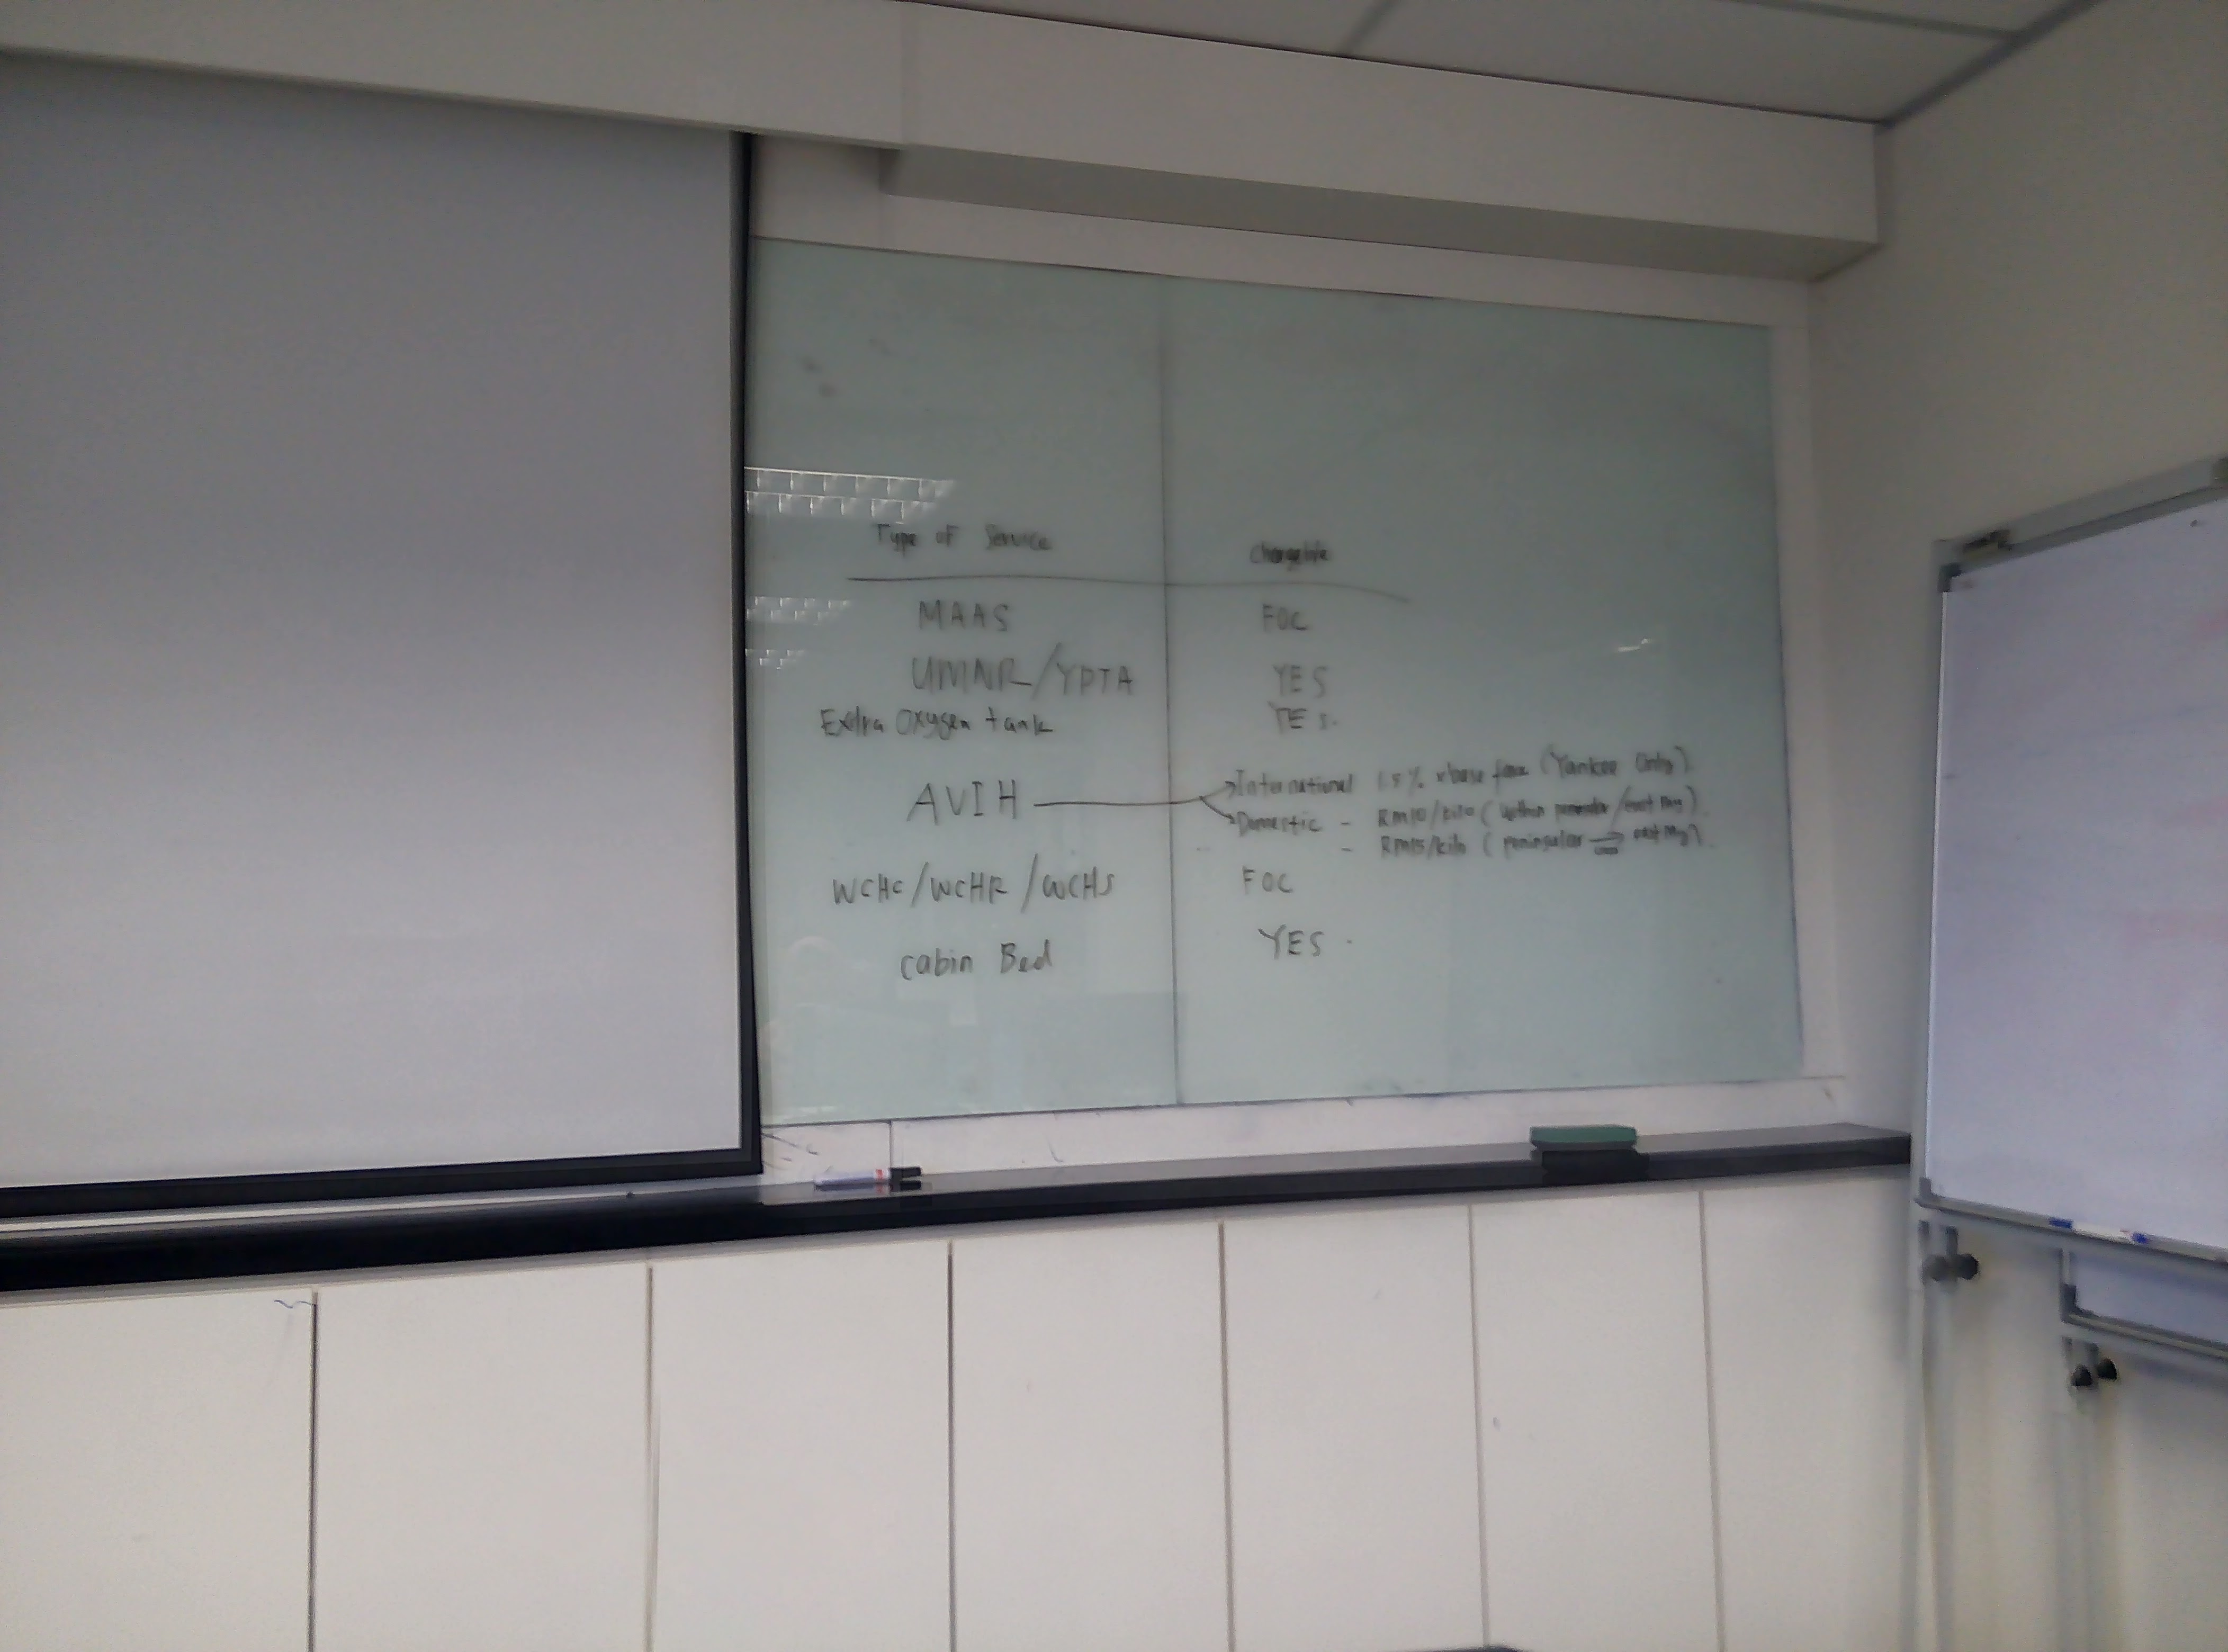 Type of Service Chargeble
MAAS FOC
UMNR/YPTA YES
Extra Oxygen tank YES.
AVIH International 1.5% x base fare (Yankee Only).
Domestic - RM10/kilo (within peninsular/east My).
- RM15/kilo (peninsular → east My).
WCHC/WCHR/WCHS FOC
cabin Bed YES.